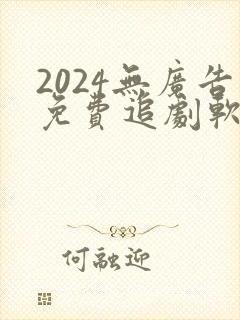 2024無廣告
免費追劇軟
何融迎